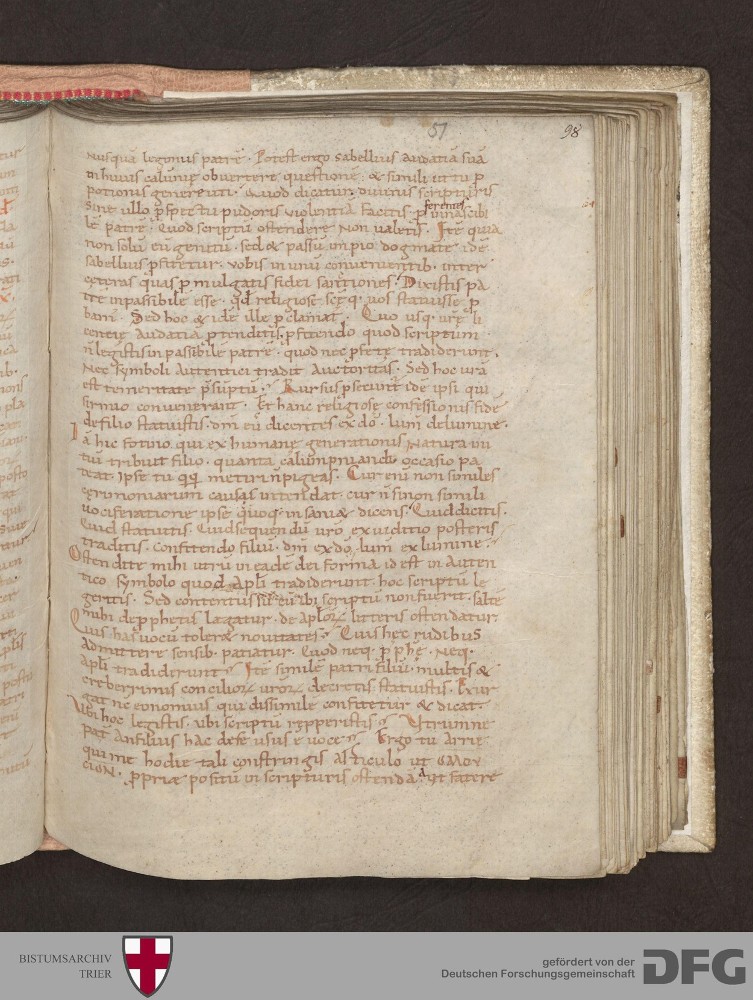 51 98
nusquā legimus patrē · Potest ergo sabellius audatiā suā
in huius calūnię obuertere questionē · & simili
potionis genere uti · Quod dicatur diuinis scripturis
sine ullo violentiā facitis ferentes
lē patrē · Quod scriptū ostendere non ualetis · Itē quia
non solū eū genitū · sed & passū impio dogmate idē
sabellius ꝓfitetur · vobis in unū conuenientib · inter
ceteras quas ꝓmulgatis fidei sanctiones · Dixistis pa
trē inpassibile esse · qd religiose sęq · uos statuisse ꝓ
bam · Sed hoc & idē ille ꝓclamat · Quo usq · urę li
centię audatiā ꝓtenditis · ꝓfitendo quod scriptum
n̄ legistis inpassibile patrē · quod nec ꝓfetę tradiderunt ·
Nec symboli autentici tradit auctoritas · Sed hoc urā
est temeritate p̄suptū · Rursus ꝓsecuntur idē ipsi qui
sirmio convenerant · Et hanc religiosę confessionis fidē
de filio statuistis · dm̄ eū dicentes ex dō · lum̄ de lumine ·
ā hic fotino qui ex humanę generationis natura ini
tiū tribuit filio · quanta calumpniandi occasio pa
teat · Ipse tu metiri n̄ pigeas · Cur eni non similes
cerimoniarum causas intendat · cur n̄ sinon simili
uociferatione ipse quoq · insaniæ dicens · Quid dicitis ·
Quid statuitis · Quid sequendū uro ex iudicio posteris
traditis · Confitendo filiū · dm̄ ex dō · lum̄ ex lumine ·
Ostendite mihi utrū in eadē dei forma id est in auten
tico symbolo quod apli tradiderunt · hoc scriptū le
geritis · Sed contentus si eū ibi scriptū non fuerit · saltē
mihi de ꝓphetis lægatur · de aplorꝝ litteris ostendatur
Quis has uocū toleret nouitates · Quis hęc rudibus
admittere sensib · patiatur · Quod neq · ꝓphę · Neq ·
apli tradidirunt · Itē similē patri filiū · multis &
creberrimis conciliorꝝ urorꝝ decretis statuistis · Exur
gat nc eunomius qui dissimilē confitetur & dicat
Ubi hoc legistis · ubi scriptū repperistis · Utrumne
pat an filius hac de se usus e uoce · Ergo tu arrię
qui me hodie tali constringis articulo ut omou
cion · ꝓpriæ positū in scripturis ostendā · Aut fatere
BISTUMSARCHIV
TRIER
gefördert von der
Deutschen Forschungsgemeinschaft
DFG